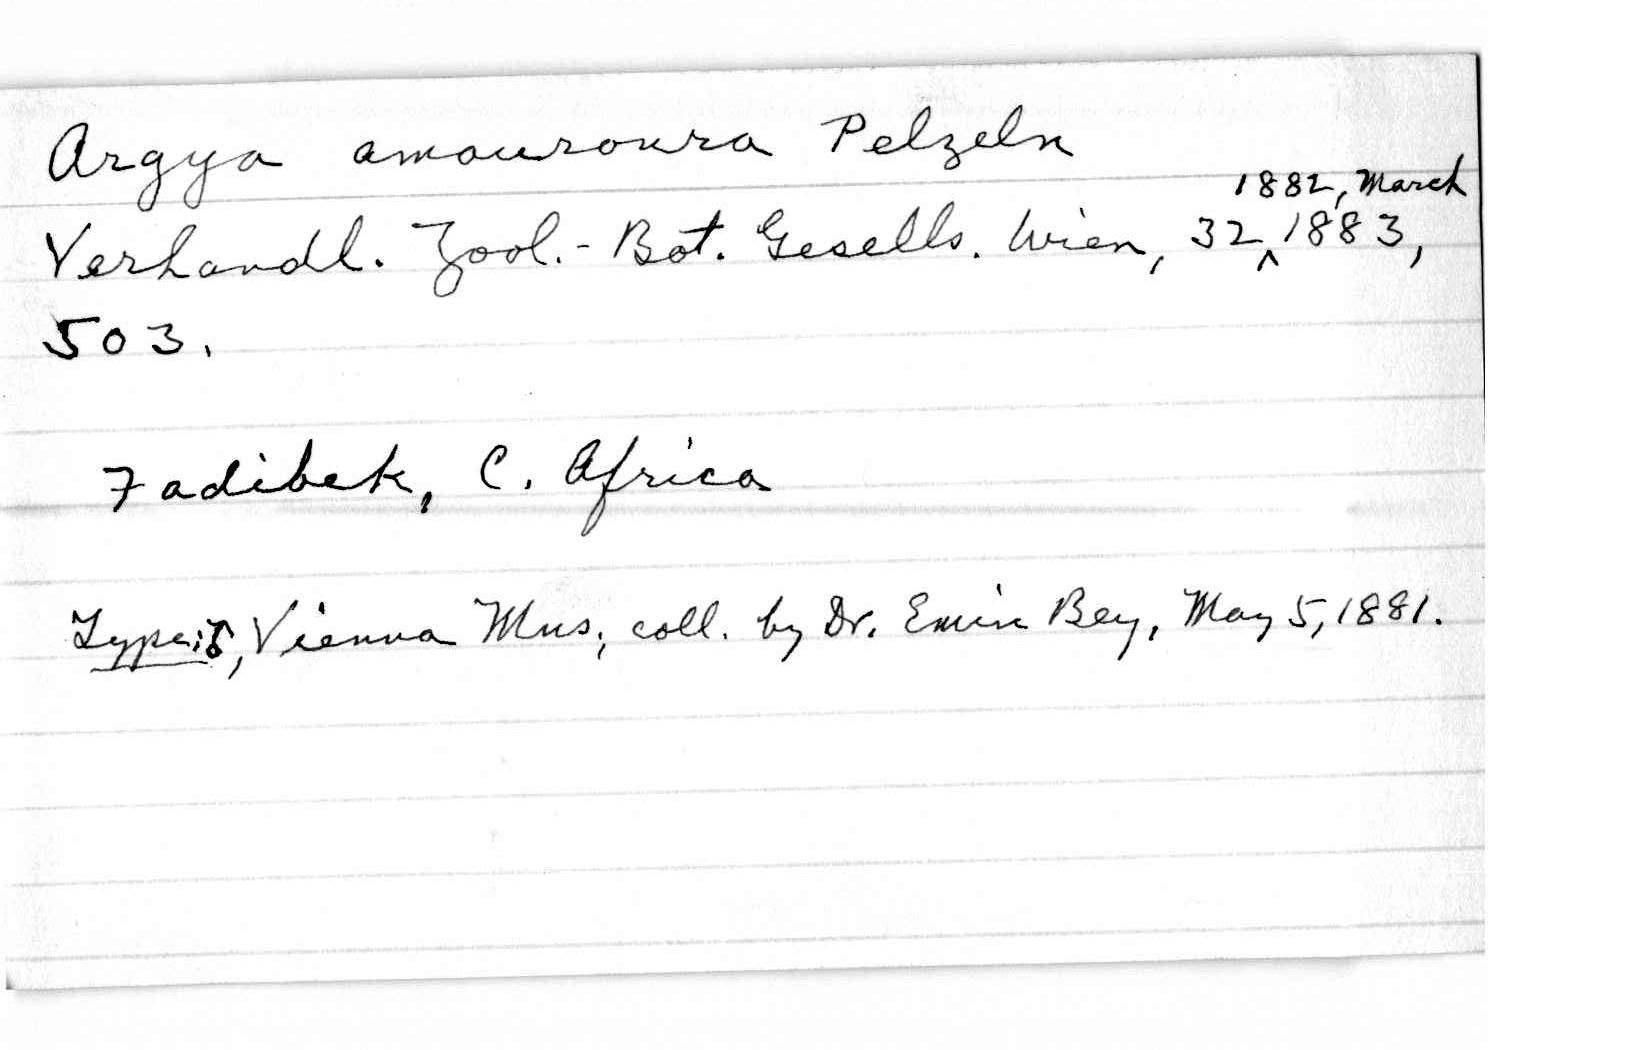 Argya amauroura Pelzeln
Verhandl. Zool.-Bot. Gesells. Wien, 32, 1882, March 1883,
503.
Fadibek, C. Africa
Type: ♂, Vienna Mus., coll. by Dr. Emin Bey, May 5, 1881.